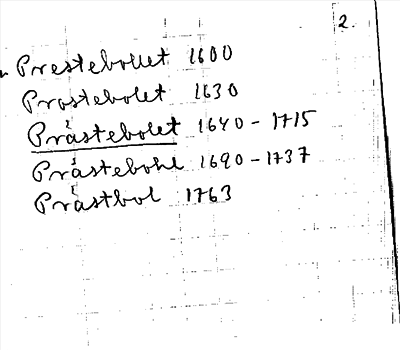 2.
Prestebollet 1600
Prostebolet 1630
Pråstebolet 1640 - 1715
Pråstebohl 1690 - 1737
Pråstbol 1763